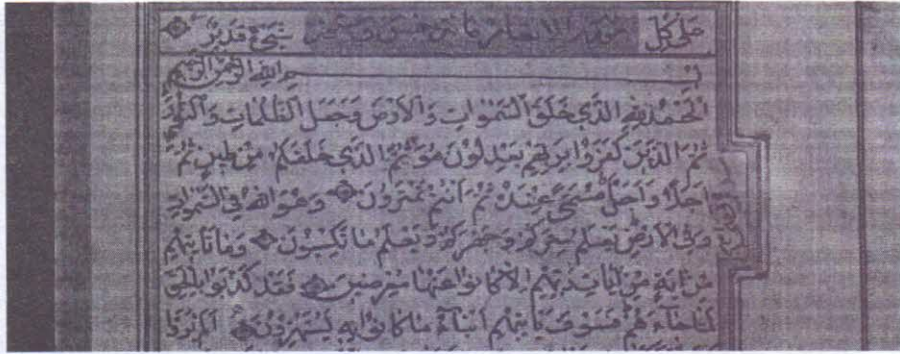 عَلَىٰ كُلِّ سورة الانعام شَيْءٍ قَدِيرٌ
بِسْمِ اللهِ الرَّحْمٰنِ الرَّحِيمِ
اَلْحَمْدُ لِلّٰهِ الَّذِي خَلَقَ السَّمٰوَاتِ وَالْاَرْضَ وَجَعَلَ الظُّلُمَاتِ وَالنُّورَ
ثُمَّ الَّذِينَ كَفَرُوا بِرَبِّهِمْ يَعْدِلُونَ هُوَ الَّذِي خَلَقَكُمْ مِنْ طِينٍ ثُمَّ
اَجَلًا وَاَجَلٌ مُسَمًّى عِنْدَهُ ثُمَّ اَنْتُمْ تَمْتَرُونَ وَهُوَ اللهُ فِي السَّمٰوَاتِ
وَفِي الْاَرْضِ يَعْلَمُ سِرَّكُمْ وَجَهْرَكُمْ وَيَعْلَمُ مَا تَكْسِبُونَ وَمَا تَاْتِيهِمْ
مِنْ اٰيَةٍ مِنْ اٰيَاتِ رَبِّهِمْ اِلَّا كَانُوا عَنْهَا مُعْرِضِينَ فَقَدْ كَذَّبُوا بِالْحَقِّ
لَمَّا جَاءَهُمْ فَسَوْفَ يَاْتِيهِمْ اَنْبَاءُ مَا كَانُوا بِهِ يَسْتَهْزِؤُنَ اَلَمْ يَرَوْا